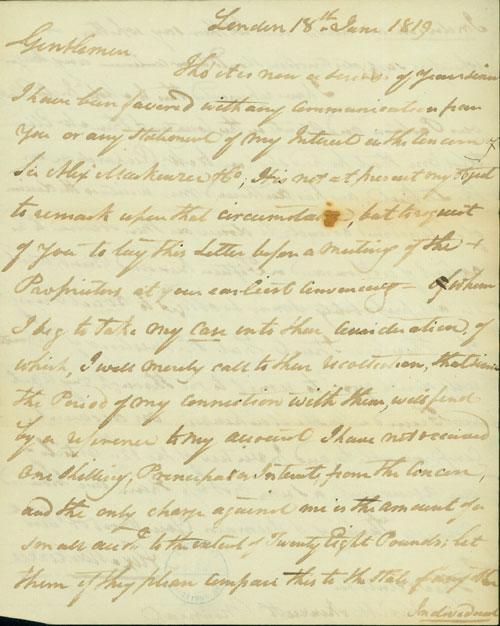 London 18th June 1819
Gentlemen
Tho it is now a series of Years since
I have been favored with any Communication from
You or any Statement of my Interest in the Concern of
Sir Alex Mackenzie & Co, It is not at present my object
to remark upon that circumstance, but to request
of You to lay this Letter before a Meeting of the
Proprietors at your earliest Conveniency – Of whom
I beg to take my Case into their Consideration, of
which, I will merely call to their recollection, that since
the Period of my connection with them, will find
by a reference to my account I have not received
One Shilling, Principal or Interest, from the Concern,
and the only charge against me is the amount of a
small acct. to the extent of Twenty Eight Pounds; let
them if they please compare this to the State of any other
Individual